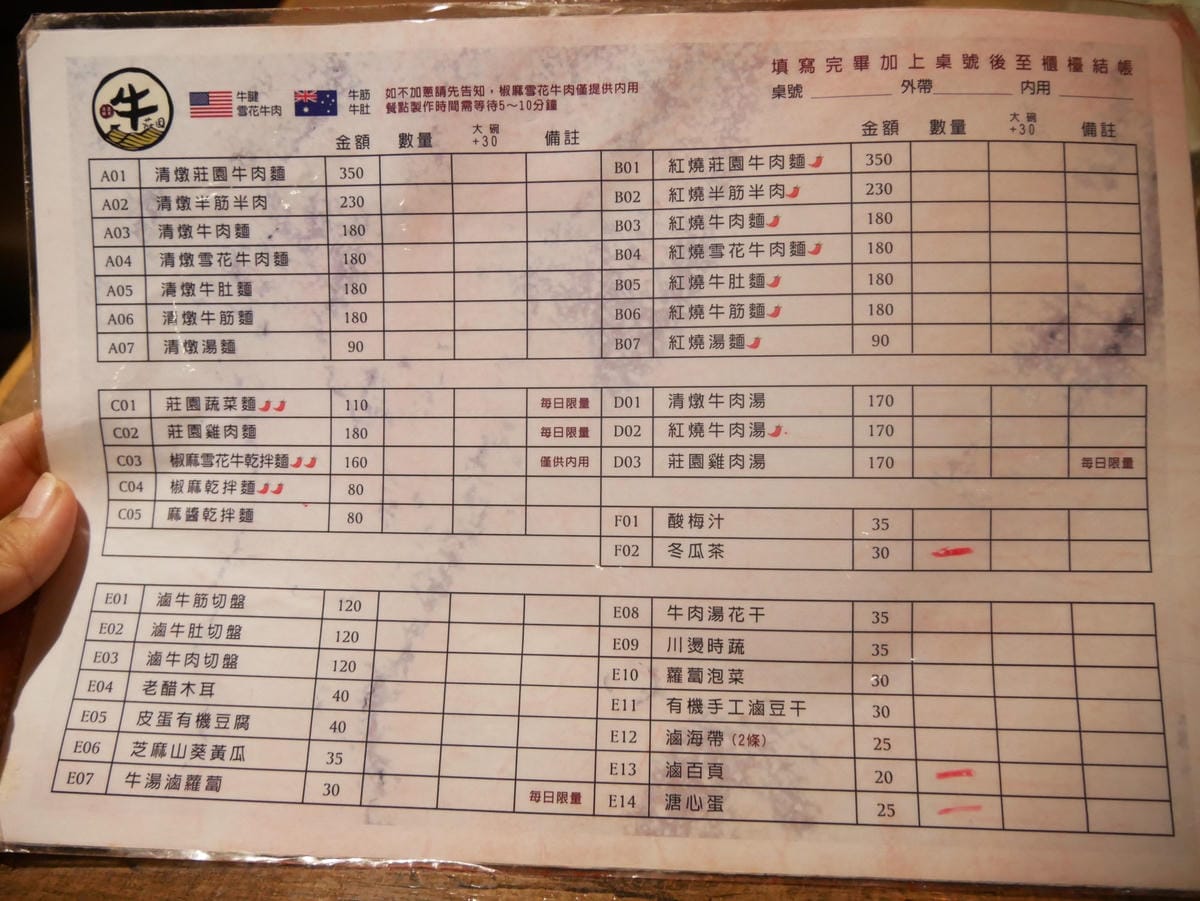 填寫完畢加上桌號後至櫃檯結帳
牛 莊園
牛腱
雪花牛肉
牛筋
牛肚
如不加蔥請先告知，椒麻雪花牛肉僅提供內用
餐點製作時間需等待5～10分鐘
桌號 外帶 內用
金額 數量 大碗+30 備註 金額 數量 大碗+30 備註
A01 清燉莊園牛肉麵 350 B01 紅燒莊園牛肉麵 350
A02 清燉半筋半肉 230 B02 紅燒半筋半肉 230
A03 清燉牛肉麵 180 B03 紅燒牛肉麵 180
A04 清燉雪花牛肉麵 180 B04 紅燒雪花牛肉麵 180
A05 清燉牛肚麵 180 B05 紅燒牛肚麵 180
A06 清燉牛筋麵 180 B06 紅燒牛筋麵 180
A07 清燉湯麵 90 B07 紅燒湯麵 90
C01 莊園蔬菜麵 110 每日限量 D01 清燉牛肉湯 170
C02 莊園雞肉麵 180 每日限量 D02 紅燒牛肉湯 170
C03 椒麻雪花牛乾拌麵 160 僅供內用 D03 莊園雞肉湯 170 每日限量
C04 椒麻乾拌麵 80
C05 麻醬乾拌麵 80 F01 酸梅汁 35
F02 冬瓜茶 30
E01 滷牛筋切盤 120 E08 牛肉湯花干 35
E02 滷牛肚切盤 120 E09 川燙時蔬 35
E03 滷牛肉切盤 120 E10 蘿蔔泡菜 30
E04 老醋木耳 40 E11 有機手工滷豆干 30
E05 皮蛋有機豆腐 40 E12 滷海帶(2條) 25
E06 芝麻山葵黃瓜 35 E13 滷百頁 20
E07 牛湯滷蘿蔔 30 每日限量 E14 溏心蛋 25